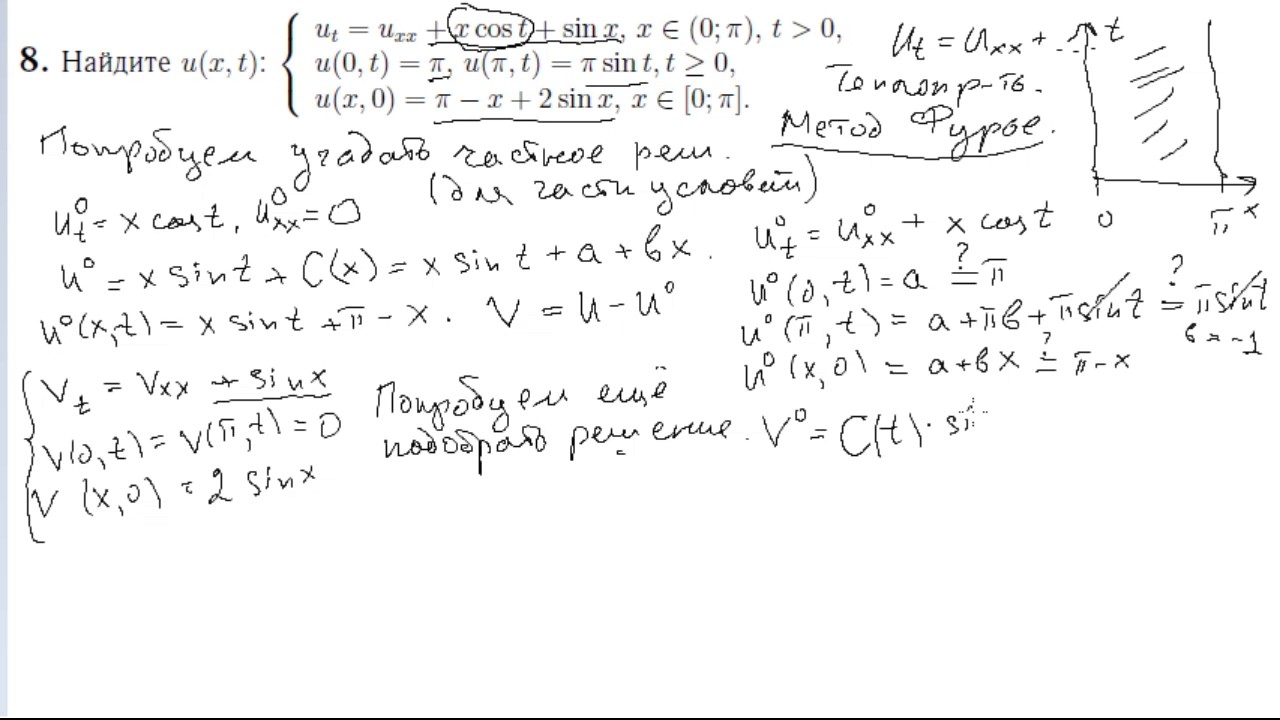 8. Найдите u(x, t): { u_t = u_xx + x cos t + sin x, x ∈ (0; π), t > 0,
u(0, t) = π, u(π, t) = π sin t, t ≥ 0,
u(x, 0) = π − x + 2 sin x, x ∈ [0; π].
u_t = u_xx + ...
Теплопр-ть.
Метод Фурье.
t
0
π
x
Попробуем угадать частное реш.
(для части условий)
u⁰_t = x cos t, u⁰_xx = 0
u⁰ = x sin t + C(x) = x sin t + a + bx.
u⁰(x,t) = x sin t + π − x. V = u − u⁰
u⁰_t = u⁰_xx + x cos t
u⁰(0,t) = a ≟ π
u⁰(π,t) = a + πb + π sin t ≟ π sin t
b = −1
u⁰(x,0) = a + bx ≟ π − x
{ V_t = V_xx + sin x
V(0,t) = V(π,t) = 0
V(x,0) = 2 sin x
Попробуем ещё
подобрать решение. V⁰ = C(t) · si